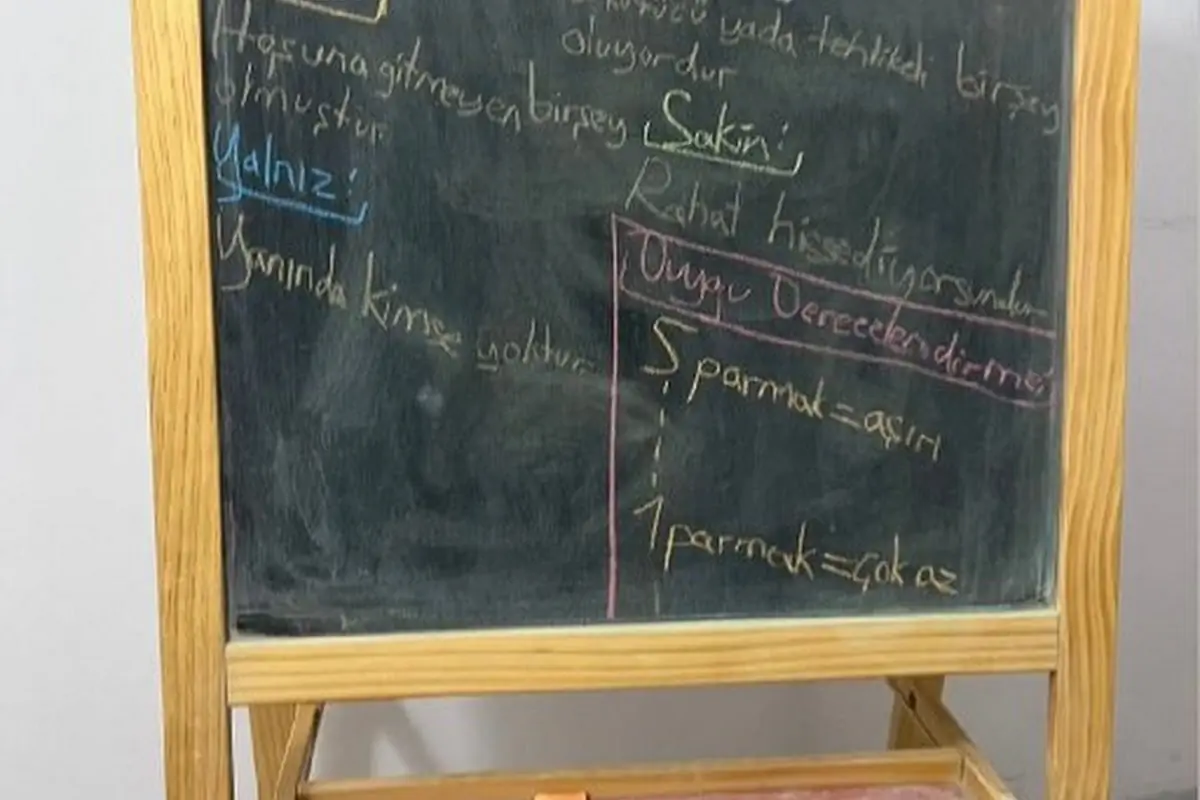 Hoşuna gitmeyen birşey
olmuştur
Yalnız:
Yanında kimse yoktur
yada tehlikeli birşey
oluyordur
Sakin:
Rahat hissediyorsundur
Duygu Derecelendirme:
5 parmak=aşırı
1 parmak=çok az